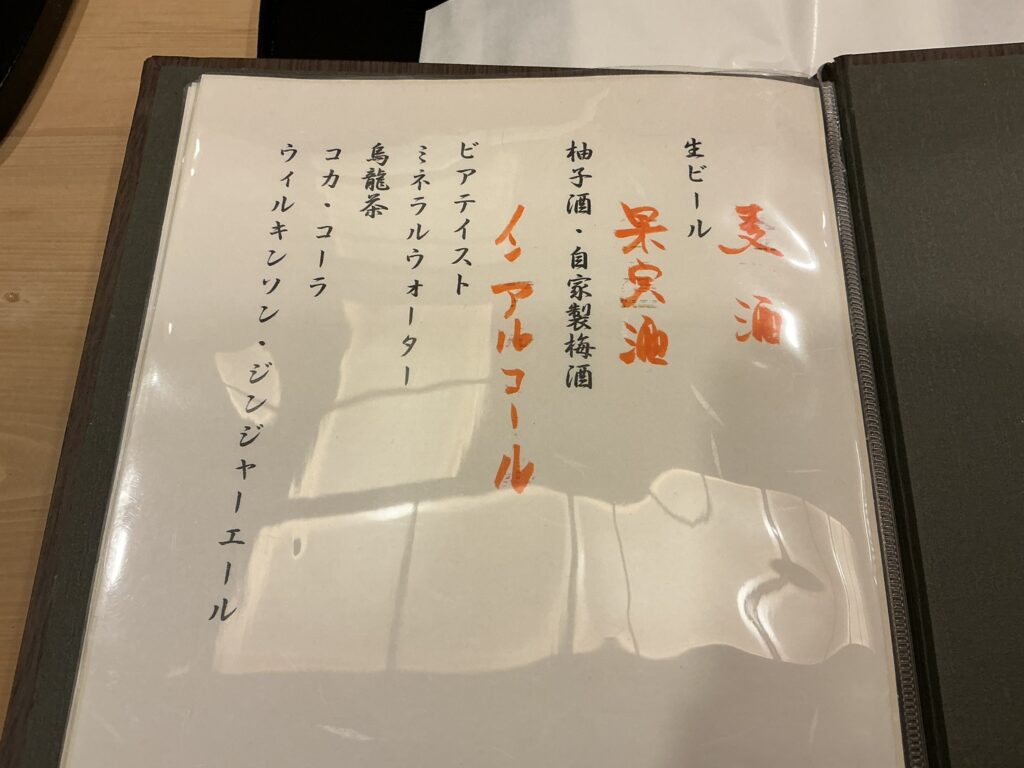 麦酒
生ビール
果実酒
柚子酒・自家製梅酒
インアルコール
ビアテイスト
ミネラルウォーター
烏龍茶
コカ・コーラ
ウィルキンソン・ジンジャーエール